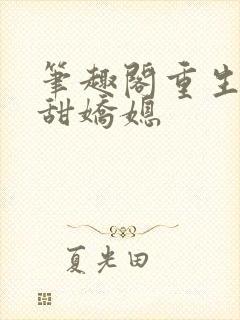 筆趣閣重生
甜嬌媳
夏光田